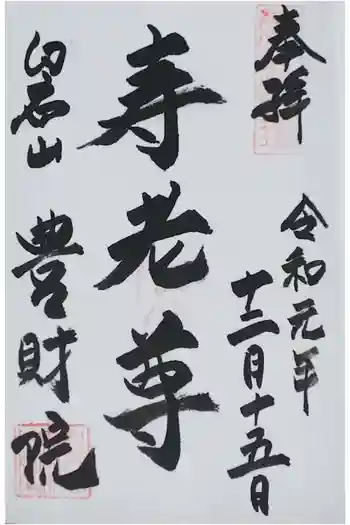 奉拝
令和元年
十二月十五日
寿老尊
白石山
豊財院